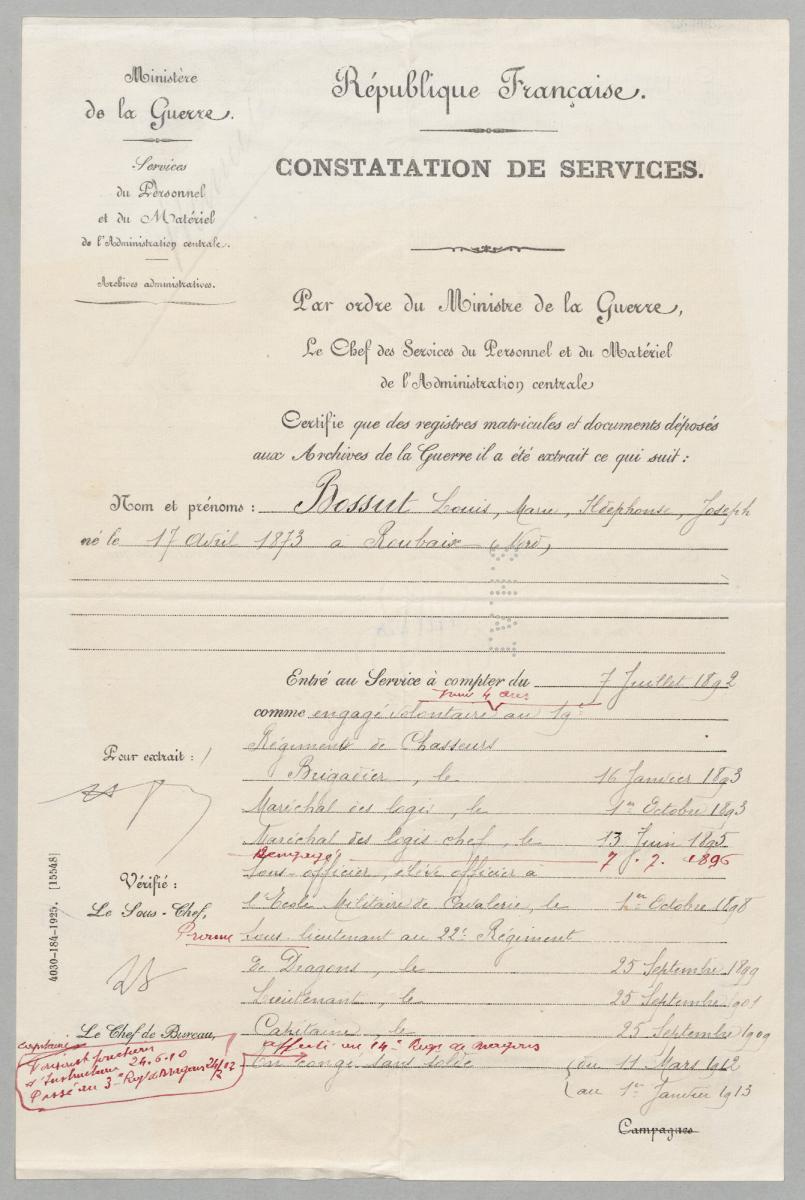 Ministère
de la Guerre.
Services
du Personnel
et du Matériel
de l'Administration centrale.
Archives administratives.
République Française.
CONSTATATION DE SERVICES.
Par ordre du Ministre de la Guerre,
Le Chef des Services du Personnel et du Matériel
de l'Administration centrale
Certifie que des registres matricules et documents déposés
aux Archives de la Guerre il a été extrait ce qui suit :
Nom et prénoms : Bossut Louis, Marie, Ildephonse, Joseph
né le 17 avril 1873 à Roubaix (Nord)
Entré au Service à compter du 7 Juillet 1892
pour 4 ans
comme engagé volontaire au 19e
Régiment de Chasseurs
Brigadier, le 16 Janvier 1893
Maréchal des logis, le 1er Octobre 1893
Maréchal des logis chef, le 13 Juin 1895
Rengagé 7. 7. 1896
Sous-officier, élève officier à
l'Ecole Militaire de Cavalerie, le 1er Octobre 1898
Promu Sous-lieutenant au 22e Régiment
de Dragons, le 25 Septembre 1899
Lieutenant, le 25 Septembre 1901
Capitaine, le 25 Septembre 1909
affecté au 14e Regt de Dragons
En congé sans solde (du 11 Mars 1912
(au 1er Janvier 1913
Campagnes
Pour extrait :
Vérifié :
Le Sous-Chef,
Le Chef de Bureau,
capitaine
fonctions
d'Instructeur 24.6.10
Passé au 3e Regt de Dragons
4030-184-1925. [15548]